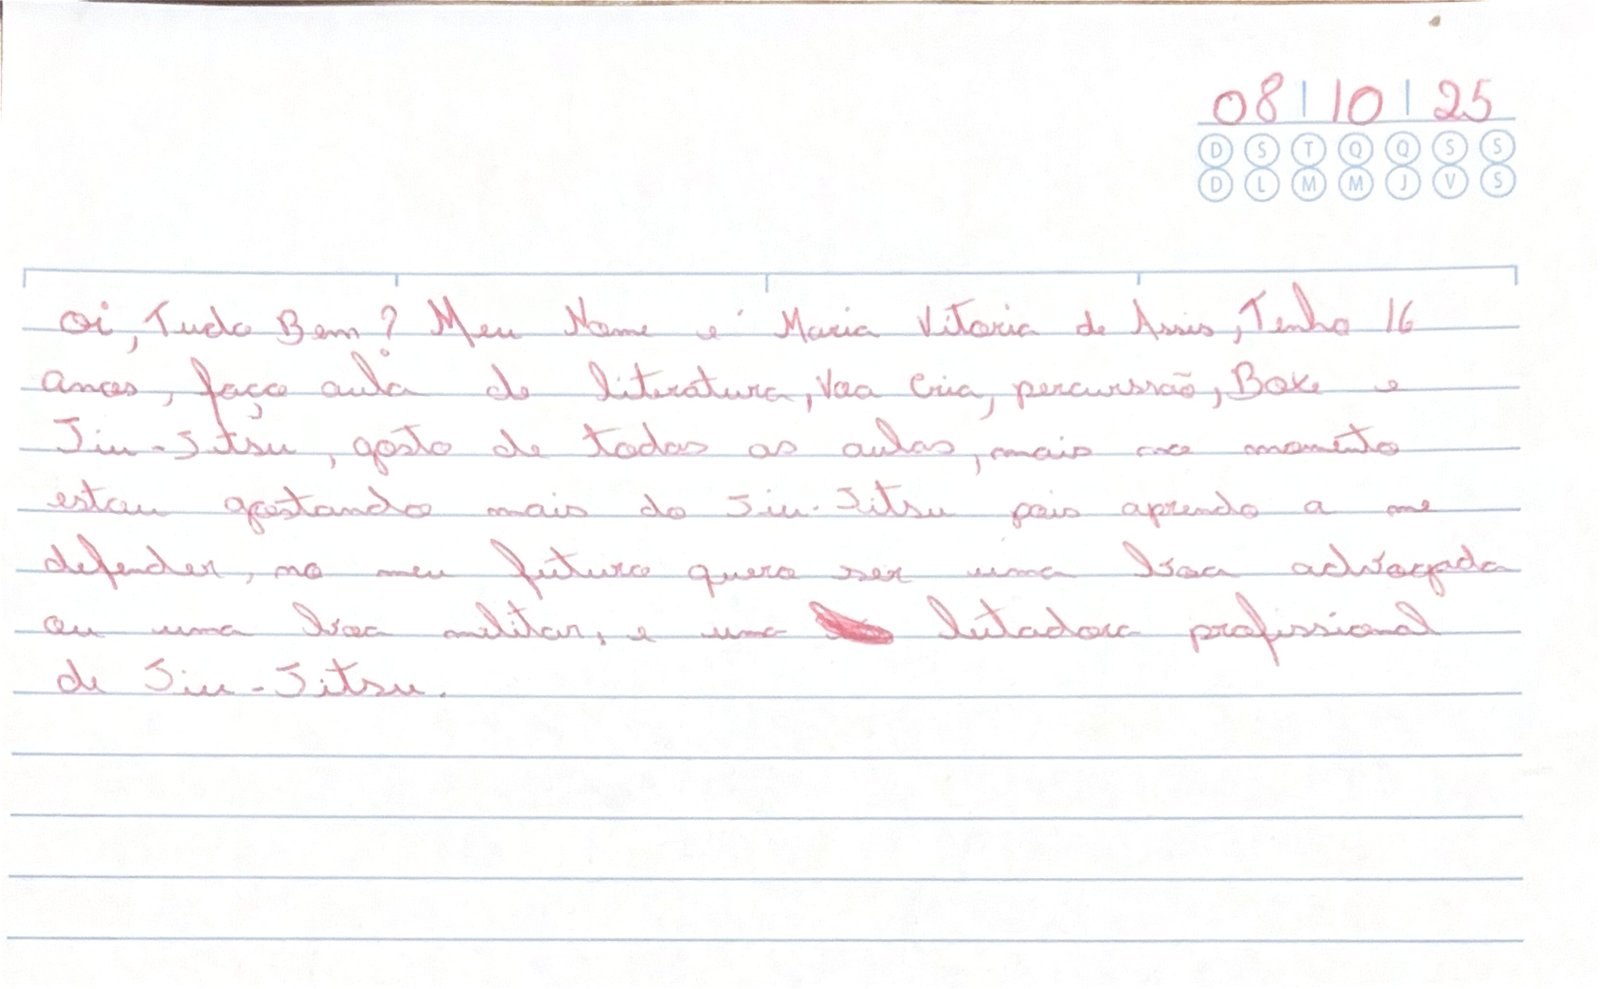 08 | 10 | 25
D S T Q Q S S
D L M M J V S
Oi, Tudo Bem? Meu Nome é Maria Vitoria de Assis, Tenho 16
anos, faço aula de literatura, Voa Cria, percurssão, Boxe e
Jiu-Jitsu, gosto de todas as aulas, mais no momento
estou gostando mais do Jiu-Jitsu pois aprendo a me
defender, no meu futuro quero ser uma boa advogada
ou uma boa militar, e uma lutadora profissional
de Jiu-Jitsu.